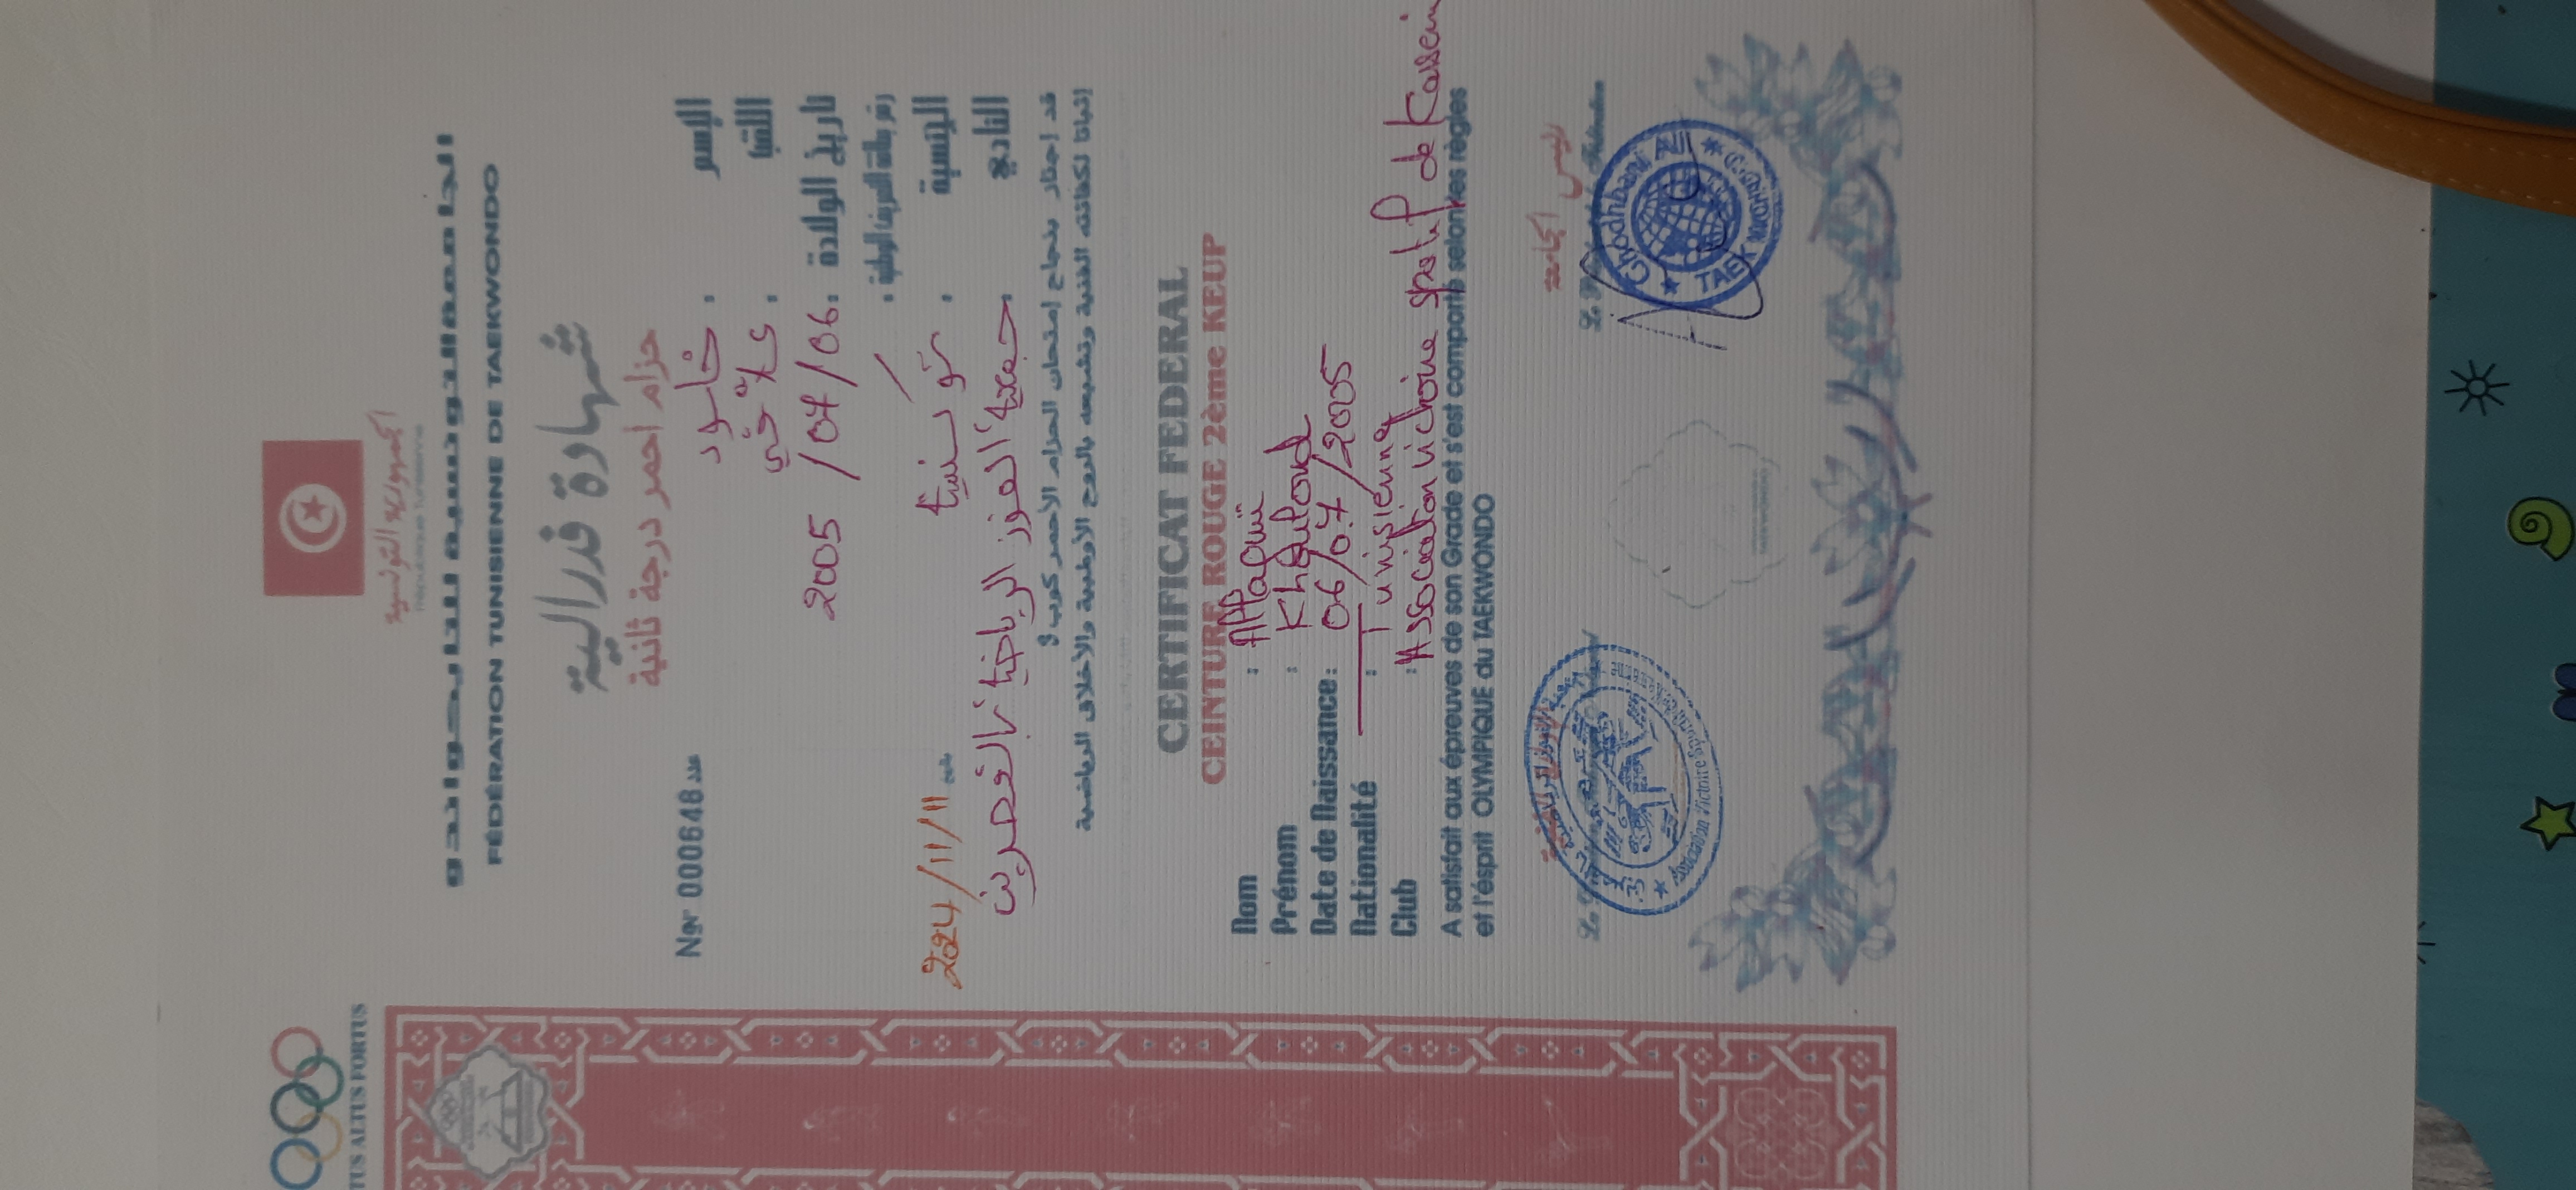 الجمهورية التونسية
République Tunisienne
الجامعة التونسية للتايكواندو
FÉDÉRATION TUNISIENNE DE TAEKWONDO
شهادة فدرالية
حزام احمر درجة ثانية
N٥/° 000648 عدد
الإسم : خلود
اللقب :
تاريخ الولادة : 06 / 07 / 2005
رقم بطاقة التعريف الوطنية : /
2024/11/11
الجنسية : تونسية
النادي : جمعية الفوز الرياضية بالقصرين
قد إجتاز بنجاح إمتحان الحزام الأحمر كوب
إثباتا لكفائته الفنية وتشبعه بالروح الأولمبية والأخلاق الرياضية
CERTIFICAT FEDERAL
CEINTURE ROUGE 2ème KEUP
Nom :
Prénom : Khouloud
Date de Naissance : 06/07/2005
Nationalité : Tunisienne
Club : Association victoire sportif de Kasserine
A satisfait aux épreuves de son Grade et s'est comporté selon les règles
et l'ésprit OLYMPIQUE du TAEKWONDO
رئيس الجامعة
Association Victoire Sportive
Ghodhbani
TAEKWONDO
ALTUS FORTUS